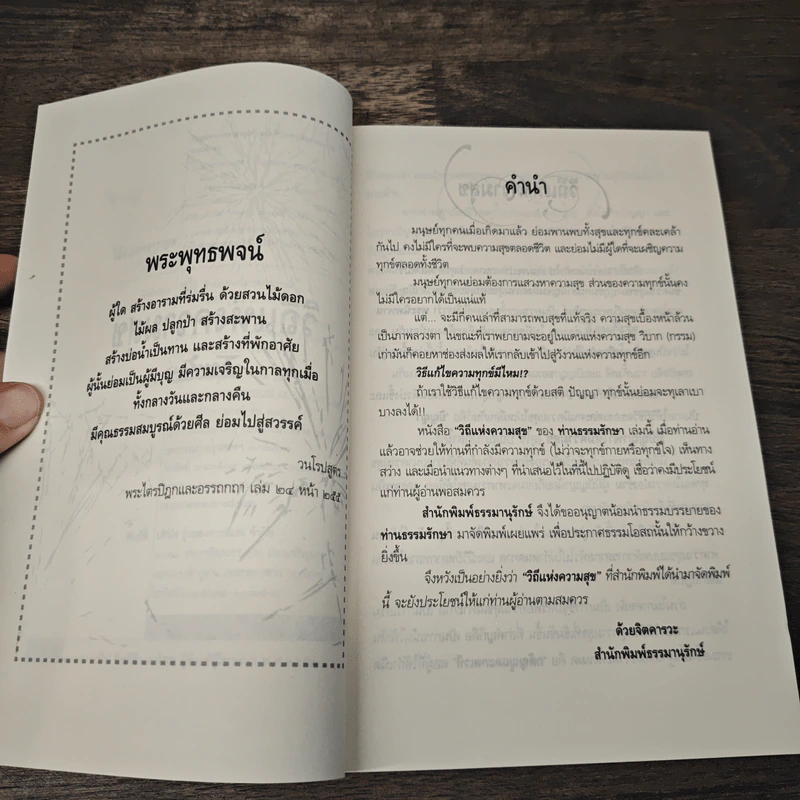 พระพุทธพจน์
ผู้ใด สร้างอารามที่ร่มรื่น ด้วยสวนไม้ดอก
ไม้ผล ปลูกป่า สร้างสะพาน
สร้างบ่อน้ำเป็นทาน และสร้างที่พักอาศัย
ผู้นั้นย่อมเป็นผู้มีบุญ มีความเจริญในกาลทุกเมื่อ
ทั้งกลางวันและกลางคืน
มีคุณธรรมสมบูรณ์ด้วยศีล ย่อมไปสู่สวรรค์
วนโรปสูตร
พระไตรปิฎกและอรรถกถา เล่ม ๒๔ หน้า ๒๕๕
คำนำ
มนุษย์ทุกคนเมื่อเกิดมาแล้ว ย่อมพานพบทั้งสุขและทุกข์คละเคล้า
กันไป คงไม่มีใครที่จะพบความสุขตลอดชีวิต และย่อมไม่มีผู้ใดที่จะเผชิญความ
ทุกข์ตลอดทั้งชีวิต
มนุษย์ทุกคนย่อมต้องการแสวงหาความสุข ส่วนของความทุกข์นั้นคง
ไม่มีใครอยากได้เป็นแน่แท้
แต่... จะมีกี่คนเล่าที่สามารถพบสุขที่แท้จริง ความสุขเบื้องหน้าล้วน
เป็นภาพลวงตา ในขณะที่เราพยายามจะอยู่ในแดนแห่งความสุข วิบาก (กรรม)
เก่ามันก็คอยหาช่องส่งผลให้เรากลับเข้าไปสู่วังวนแห่งความทุกข์อีก
วิธีแก้ไขความทุกข์มีไหม!?
ถ้าเราใช้วิธีแก้ไขความทุกข์ด้วยสติ ปัญญา ทุกข์นั้นย่อมจะทุเลาเบา
บางลงได้!!
หนังสือ "วิถีแห่งความสุข" ของ ท่านธรรมรักษา เล่มนี้ เมื่อท่านอ่าน
แล้วอาจช่วยให้ท่านที่กำลังมีความทุกข์ (ไม่ว่าจะทุกข์กายหรือทุกข์ใจ) เห็นทาง
สว่าง และเมื่อนำแนวทางต่างๆ ที่นำเสนอไว้ในที่นี้ไปปฏิบัติดู เชื่อว่าคงมีประโยชน์
แก่ท่านผู้อ่านพอสมควร
สำนักพิมพ์ธรรมานุรักษ์ จึงได้ขออนุญาตน้อมนำธรรมบรรยายของ
ท่านธรรมรักษา มาจัดพิมพ์เผยแพร่ เพื่อประกาศธรรมโอสถนั้นให้กว้างขวาง
ยิ่งขึ้น
จึงหวังเป็นอย่างยิ่งว่า "วิถีแห่งความสุข" ที่สำนักพิมพ์ได้นำมาจัดพิมพ์
นี้ จะยังประโยชน์ให้แก่ท่านผู้อ่านตามสมควร
ด้วยจิตคารวะ
สำนักพิมพ์ธรรมานุรักษ์